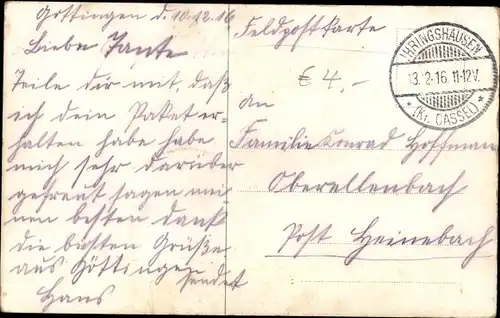 Göttingen d. 10.12.16
Liebe Tante
Teile dir mit, daß
ich dein Paket er-
halten habe habe
mich sehr darüber
gefreut sagen mei-
nen besten dank
die besten Grüße
aus Göttingen
sendet
Hans
Feldpostkarte
€ 4,-
An
Familie Konrad Hoffmann
Oberellenbach
Post Heinebach
IHRINGSHAUSEN
13.2.16. 11-12V.
* (Kr. CASSEL) *